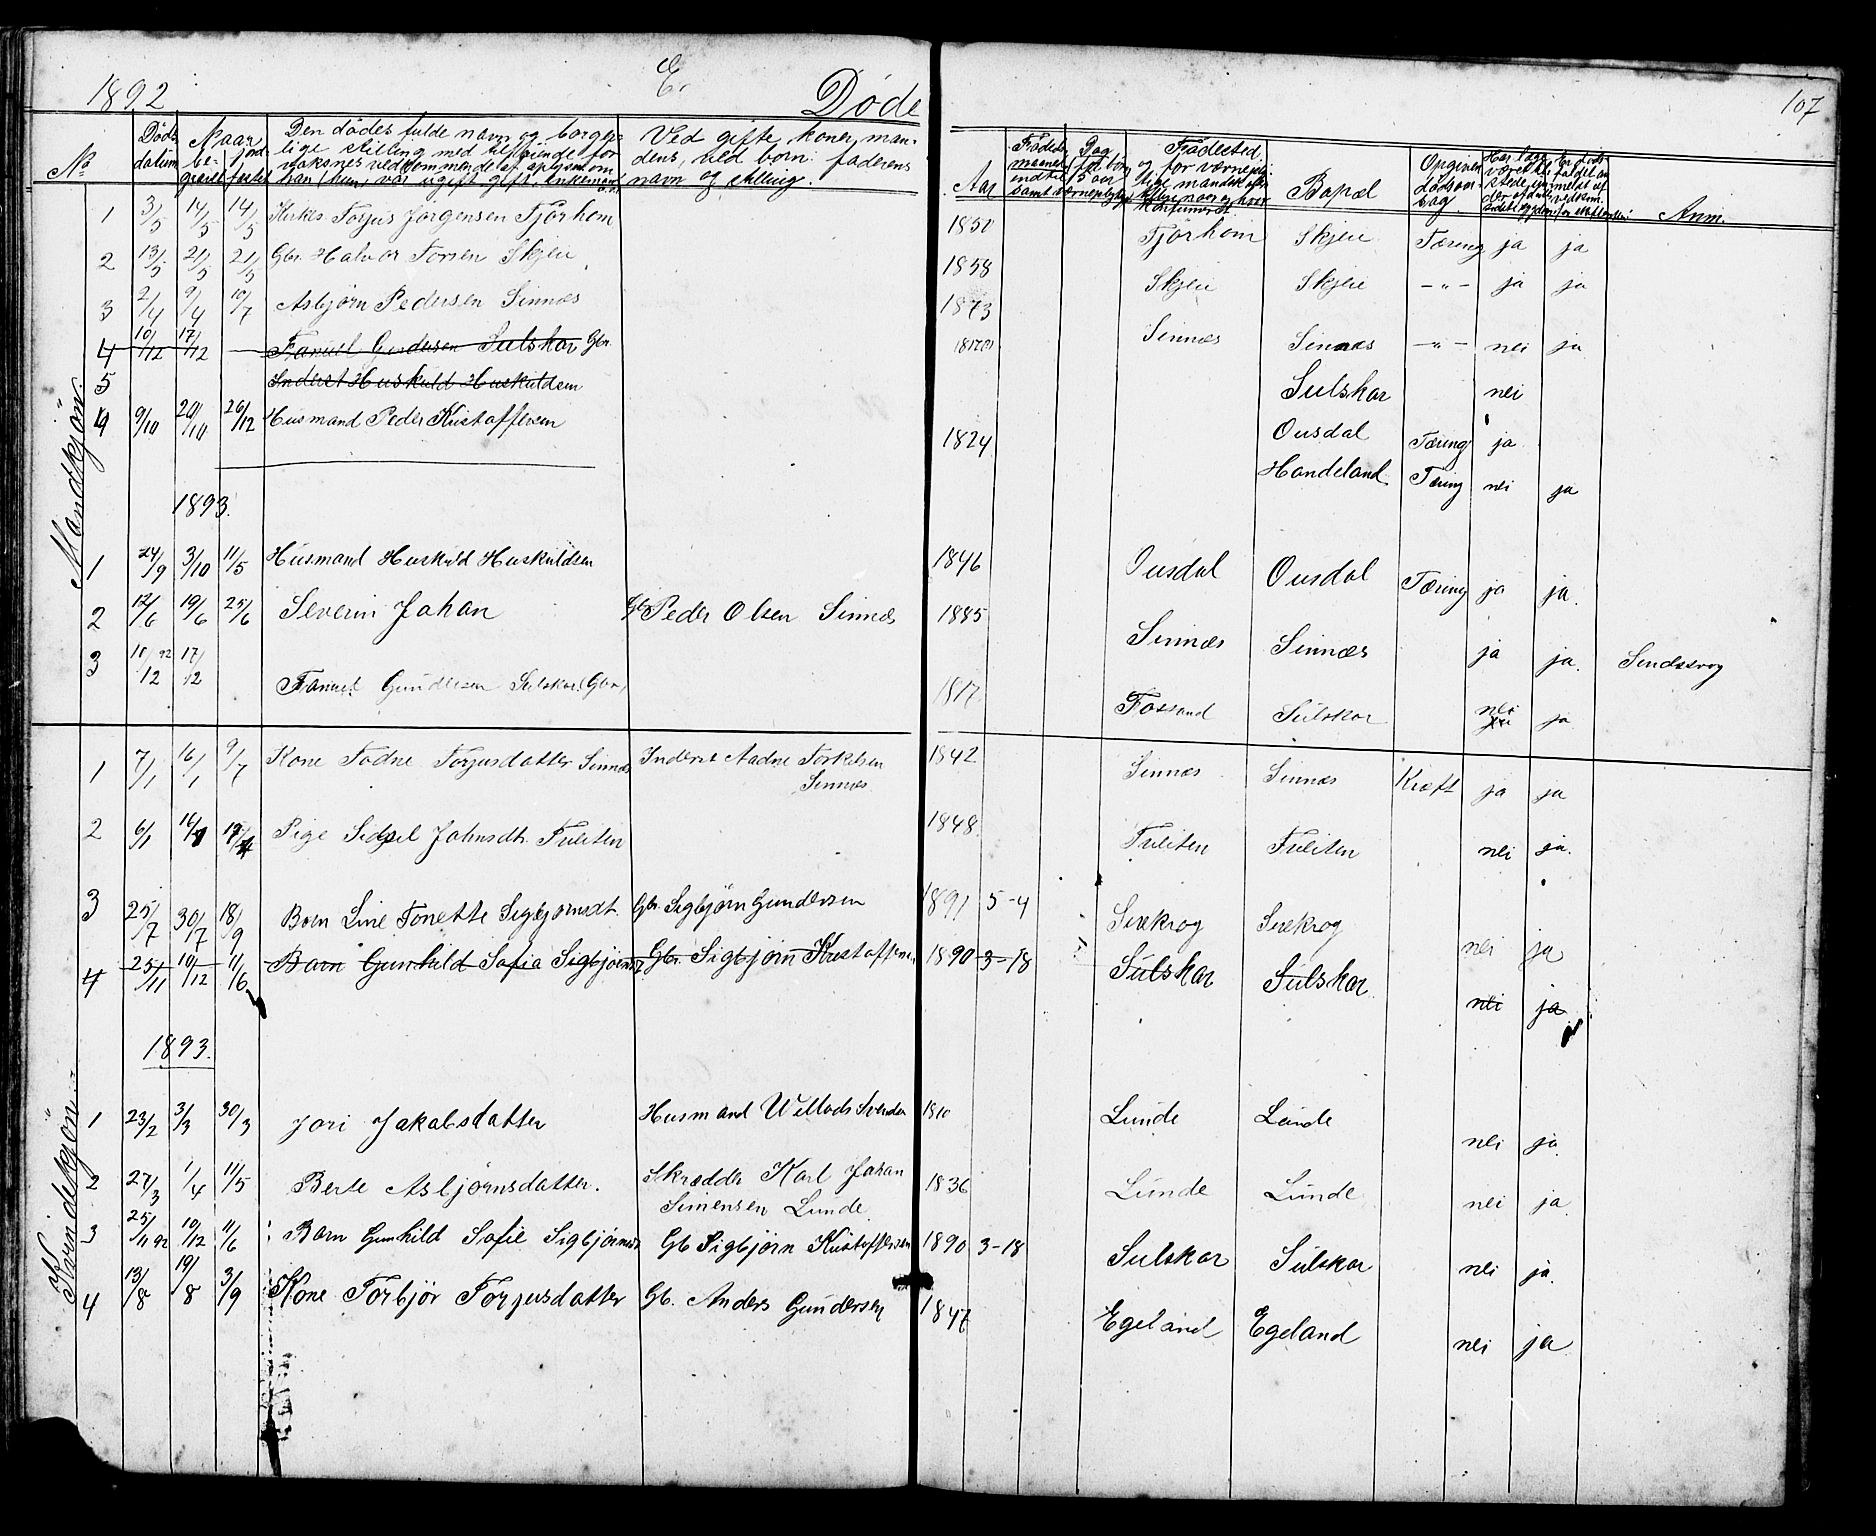 1892
E.
Døde
107
No
Døds datum
Naar be- gravet jord- festet
Den dødes fulde navn og borger-
lige stilling med tilføiende for
voksnes vedkommende af opgave om
han (hun) var ugift, gift, enkemand
Ved gifte koner, man-
dens, ved børn: faderens
navn og stilling.
Aar
Fødested
og for værnepli-
tige mandskaber
Bopæl
Opgiven dødsaarsag
Anm.
Mandkjøn.
1 3/5 14/5 14/5 Kirkes. Torjus Jørgensen Tjørhom 1850 Tjørhom Skjeie Tæring ja ja
2 13/5 21/5 21/5 Gbr. Halvor Torsen Skjeie 1858 Skjeie Skjeie -"- ja ja
3 2/4 9/4 10/7 Asbjørn Pedersen Sinnæs 1873 Sinnæs Sinnæs -"- nei ja
4 10/12 17/12 Fanuel Gundersen Sulskar Gbr. Sulskar nei
5 Inderst Huskuld Huskuldsen Ousdal Tæring ja
4 9/10 20/10 26/12 Husmand Peder Kristoffersen 1824 Handeland Tæring nei ja
1893.
1 24/9 3/10 11/5 Husmand Huskuld Huskuldsen 1846 Ousdal Ousdal Tæring ja ja.
2 12/6 19/6 25/6 Severin Johan Gb. Peder Olsen Sinnæs 1885 Sinnæs Sinnæs ja ja. Sindssvag
3 10/12 92 17/12 Fanuel Gundersen Sulskar Gbr. 1817 Fossand Sulskar nei ja
Kvindekjøn.
1 7/1 16/1 9/7 Kone Todne Torjusdatter Sinnæs Inderst Aadne Torkelsen
Sinnæs 1842 Sinnæs Sinnæs Kræft ja ja
2 6/1 16/1 17/4 Pige Sidsel Johnsdt. Fuliten 1848 Fuliten Fuliten nei ja.
3 25/7 30/7 18/9 Barn Line Tonette Sigbjørnsdt. Gbr. Sigbjørn Gundersen 1891 5-4 Sirekrog Sirekrog nei ja
4 25/11 10/12 11/6 Barn Gunhild Sofia Sigbjørnsd. Gbr. Sigbjørn Kristoffersen 1890 3-18 Sulskar Sulskar nei ja
1893.
1 23/2 3/3 30/3 Jori Jakobsdatter Husmand Villads Svendsen 1810 Lunde Lunde nei ja
2 27/3 1/4 11/5 Berte Asbjørnsdatter. Skrædder Karl Johan
Simensen Lunde 1836 Lunde Lunde nei ja
3 25/11 92 10/12 11/6 Barn Gunhild Sofie Sigbjørnsd. Gb Sigbjørn Kristoffersen 1890 3-18 Sulskar Sulskar nei ja
4 13/8 19/8 3/9 Kone Torbjør Torjusdatter Gb. Anders Gundersen 1847 Egeland Egeland nei ja